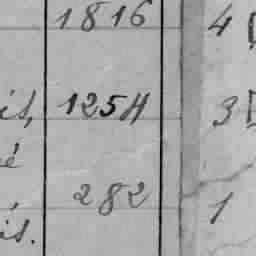 1816 4
is, 1254 3
é
282 1
is.